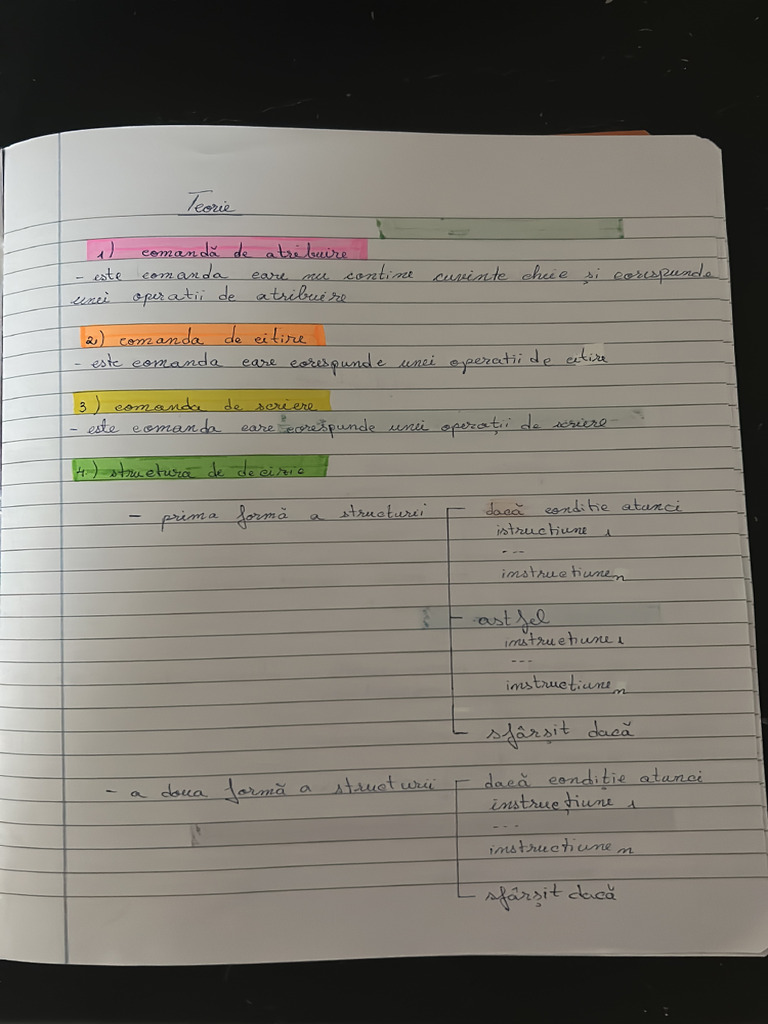 Teorie
1) comandă de atribuire
- este comanda care nu contine cuvinte cheie și corespunde
unei operatii de atribuire
2) comanda de citire
- este comanda care corespunde unei operatii de citire
3) comanda de scriere
- este comanda care corespunde unei operații de scriere
4.) structura de decizie
- prima formă a structurii dacă conditie atunci
istructiune 1
---
instructiune n
astfel
instructiune 1
---
instructiune n
sfârșit dacă
- a doua formă a structurii dacă condiție atunci
instrucțiune 1
---
instructiune n
sfârșit dacă